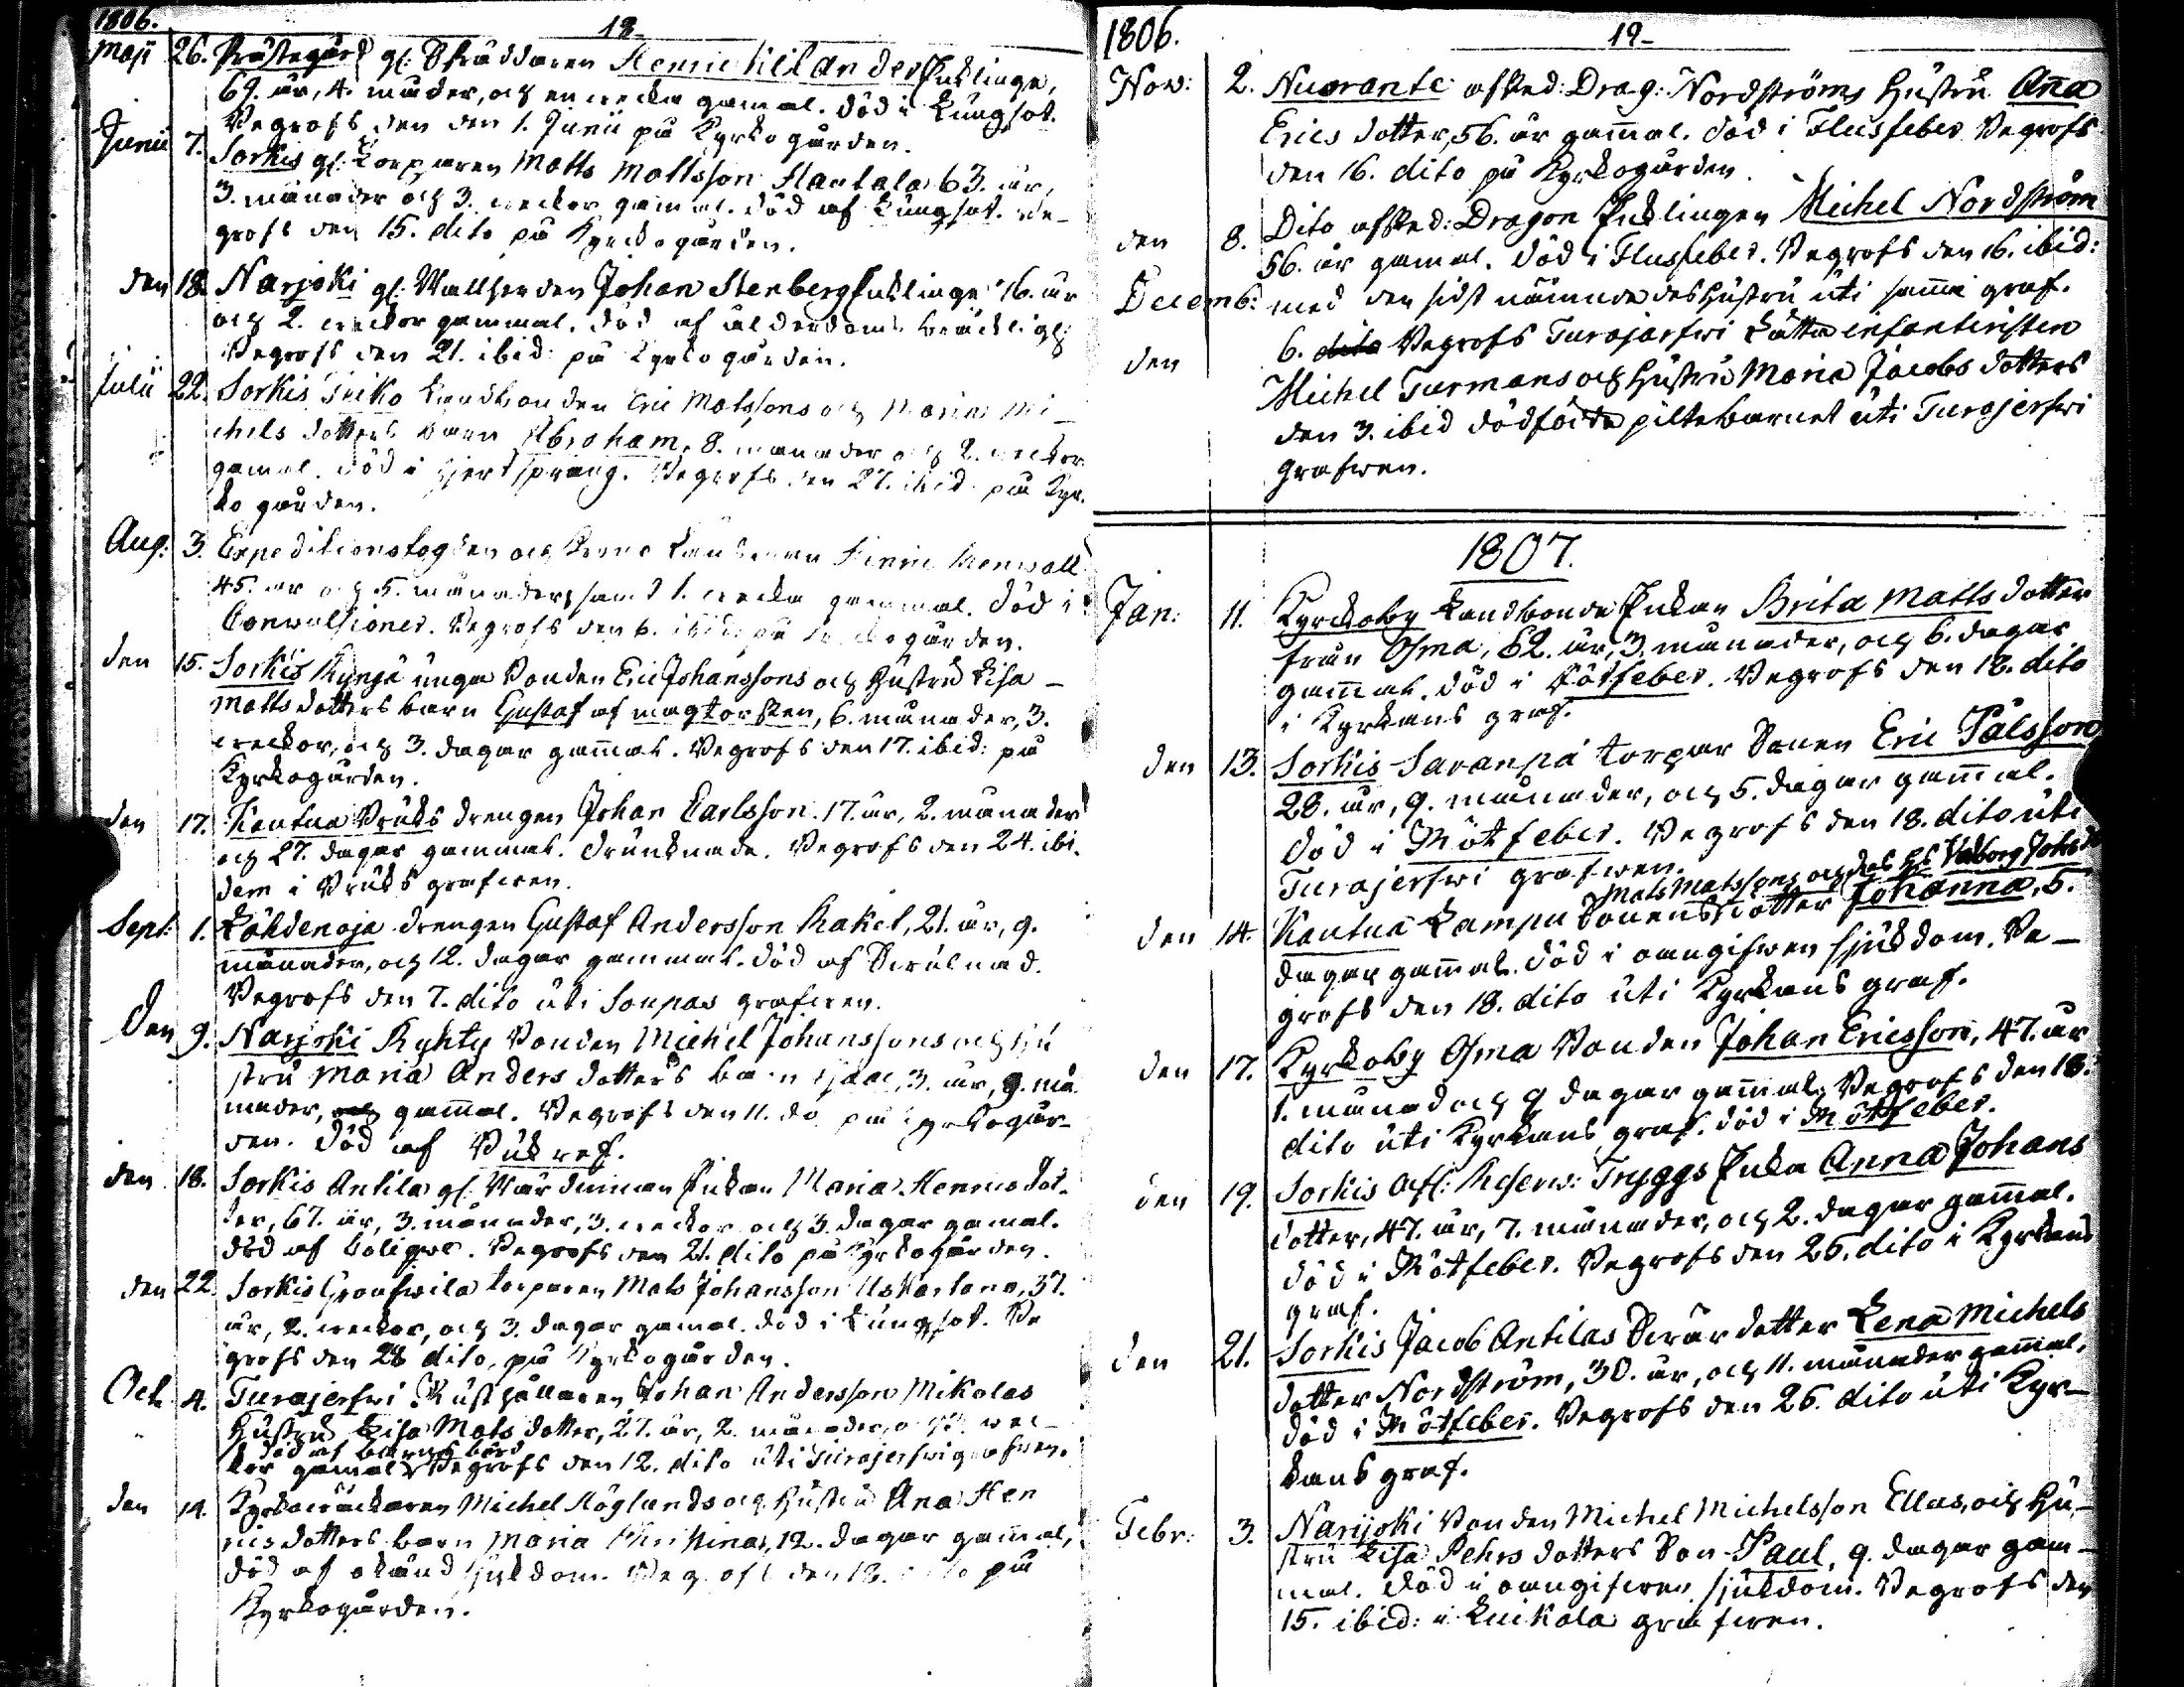 1806.
18.
Maji 26. Prästegård gl: Skräddaren Henric Kilander Enklinge,
69. år, 4. måder, och en wecka gamal. död i Lungsot.
Begrofs den den 1. Junii på Kyrkogården.
Junii 7. Sorkis gl: Torparen Matts Mattsson Hantala 63. år,
3. månader och 3. weckor gamal. död af Lungsot. Be-
grofs den 15. dito på Kyrckogården.
den 18. Narjoki gl: Vallherden Johan Stenberg Enklinge 76. år
och 2. weckor gammal. död af ålderdoms bräckligh:
Begrofs den 21. ibid: på Kyrkogården.
Julii 22. Sorkis Landbonden Eric Matssons och Maria Mi-
chels dotters barn Abraham, 8. månader och 2. weckor
gamal. död i Hjertsprång. Begrofs den 27. ibid: på Kyr-
ko gården.
Aug: 3. Expeditionsfogden och Krono Länsman
45. år och 5. månader, samt 1. wecka gammal. död i
Convulsioner. Begrofs den 6. ibid: på Kyrckogården.
den 15. Sorkis Kynjä unga Bonden Eric Johanssons och Hustru Lisa
Matts dotters barn Gustaf af magtorsken, 6. månader, 3.
weckor, och 3. dagar gam̄al. Begrofs den 17. ibid: på
Kyrkogården.
den 17. Kautua Bruks drengen Johan Carlsson. 17. år, 2. månader
och 27. dagar gammal. drunknade. Begrofs den 24. ibi-
dem i Bruks grafwen.
Sept: 1. Löhdenoja drengen Gustaf Andersson Kakel, 21. år, 9.
månader, och 12. dagar gammal. död af Swulnad.
Begrofs den 7. dito uti Soupas grafwen.
den 9. Narjoki Kyhty Bonden Michel Johanssons och Hu
stru Maria Anders dotters barn Isaac, 3. år, 9. må
nader, gam̄al. Begrofs den 11. do på Kyrkogår-
den. död af Bukref.
den 18. Sorkis Antila gl: Nämdeman Enkan Maria Henrics dot-
ter, 67. år, 3. månader, 3. weckor och 3. dagar gamal.
död af Begrofs den 21. dito på Kyrkogården.
den 22. Sorkis torparen Mats Johansson 37.
år, 2. weckor, och 3. dagar gamal. död i Lungsot. Be
grofs den 28 dito, på Kyrkogården.
Oct: 4. Turajerfwi Rusthållaren Johan Andersson Mikolas
Hustru Lisa Mats dotter, 27. år, 2. månader, och wec-
död af Barns börd
kor gamal. Begrofs den 12. dito uti Turajerfwi grafwen.
den 14. Kyrkowäcktaren Michel Höglunds och Hustru Ana Hen
rics dotters barn Maria Christina, 12. dagar gam̄al,
död af okänd sjukdom. Begrofs den 18. dito på
Kyrkogården.
1806.
19.
Nov: 2. Nuorante afsked: Drag: Nordströms Hustru Ana
Erics dotter, 56. år gam̄al. död i Flussfeber Begrofs
den 16. dito på Kyrkogården.
den 8. Dito afsked: Dragon Enklingen Michel Nordström
56. år gamal. död i Flussfeber. Begrofs den 16. ibid:
Decemb: med den sidst nämnde des Hustru uti samma graf.
den 6. dito Begrofs Turajerfwi Lätta infanteristen
Michel Turmans och Hustru Maria Jacobs dotters
den 3. ibid dödfödda piltebarnet uti Turajerfwi
grafwen.
1807.
Jan: 11. Kyrckoby Landbonde Enkan Brita Matts dotter
från Osma, 62. år, 3. månader, och 6. dagar
gam̄al. död i Rötfeber. Begrofs den 18. dito
i Kyrkans graf.
den 13. Sorkis Saranpä torpar Sonen Eric Pålsson
28. år, 9. månader, och 5. dagar gam̄al.
död i Rötfeber. Begrofs den 18. dito uti
Turajerfwi grafwen.
Mats Matssons och des Hs Valborg Johs do
den 14. Kautua Lampu Sonens dotter Johanna, 5.
dagar gam̄al. död i oangifwen sjukdom. Be-
grofs den 18. dito uti Kyrkans graf.
den 17. Kyrkoby Osma Bonden Johan Ericsson, 47. år
1. månad och 9 dagar gam̄al. Begrofs den 18.
dito uti Kyrkans graf. död i Rötfeber.
den 19. Sorkis afl: Reserv: Tryggs Enka Anna Johans
dotter, 47. år, 7. månader, och 2. dagar gam̄al.
död i Rötfeber. Begrofs den 25. dito i Kyrkans
graf.
den 21. Sorkis Jacob Antilas Swär dotter Lena Michels
dotter Nordström, 30. år, och 11. månader gam̄al.
död i Rötfeber. Begrofs den 25. dito uti Kyr-
kans graf.
Febr: 3. Narijoki Bonden Michel Michelsson Ellas, och Hu-
stru Lisa Pehrs dotters Son Paul, 9. dagar gam-
mal. död i oangifwen sjukdom. Begrofs den
15. ibid: i Luikola grafwen.